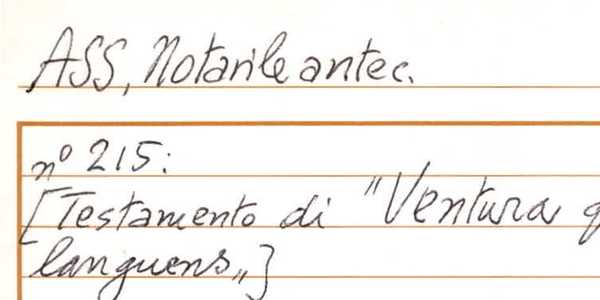 ASS, Notarile antec.
nº 215:
[Testamento di "Ventura
languens„]